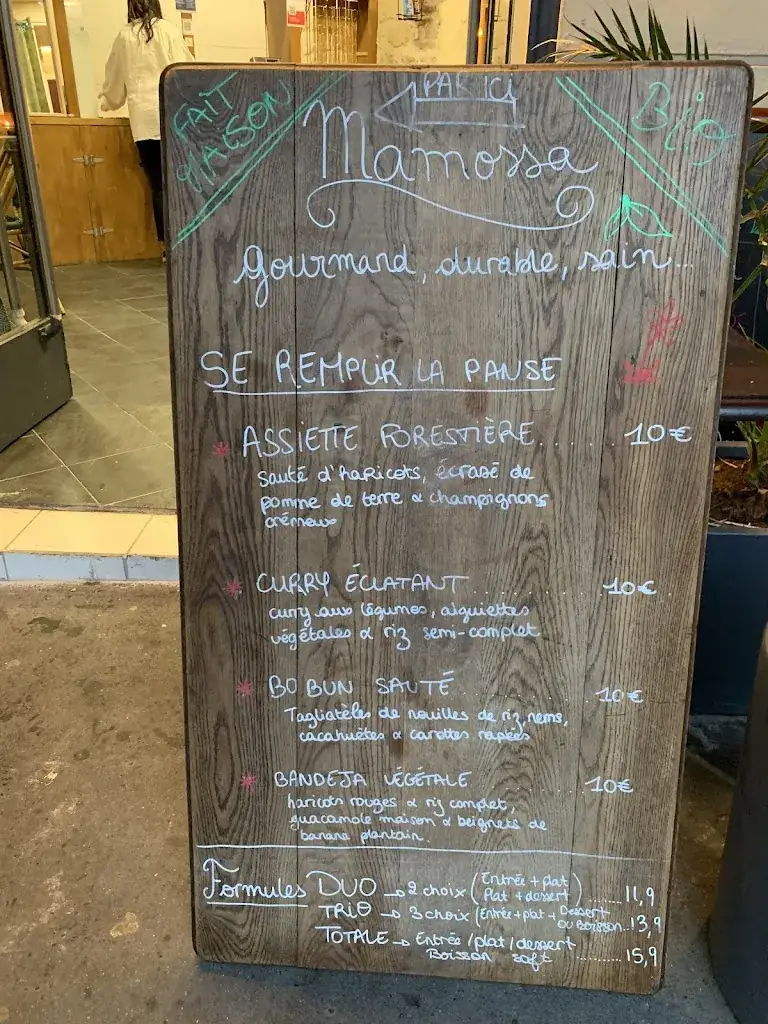 PAR ICI
FAIT MAISON
Bio
Mamossa
Gourmand, durable, sain...
SE REMPLIR LA PANSE
* ASSIETTE FORESTIÈRE........10€
sauté d'haricots, écrasé de
pomme de terre & champignons
crémeux
* CURRY ÉCLATANT........10€
curry aux légumes, aiguiettes
végétales & riz semi-complet
* BO BUN SAUTÉ........10€
Tagliatèles de nouilles de riz, nems,
cacahuètes & carottes rapées
* BANDEJA VÉGÉTALE........10€
haricots rouges & riz complet,
guacamole maison & beignets de
banane plantain.
Formules DUO → 2 choix (Entrée + plat
Plat + dessert)......11,9
TRIO → 3 choix (Entrée + plat + Dessert
OU BOISSON..13,9
TOTALE → Entrée/plat/dessert
Boisson soft..........15,9